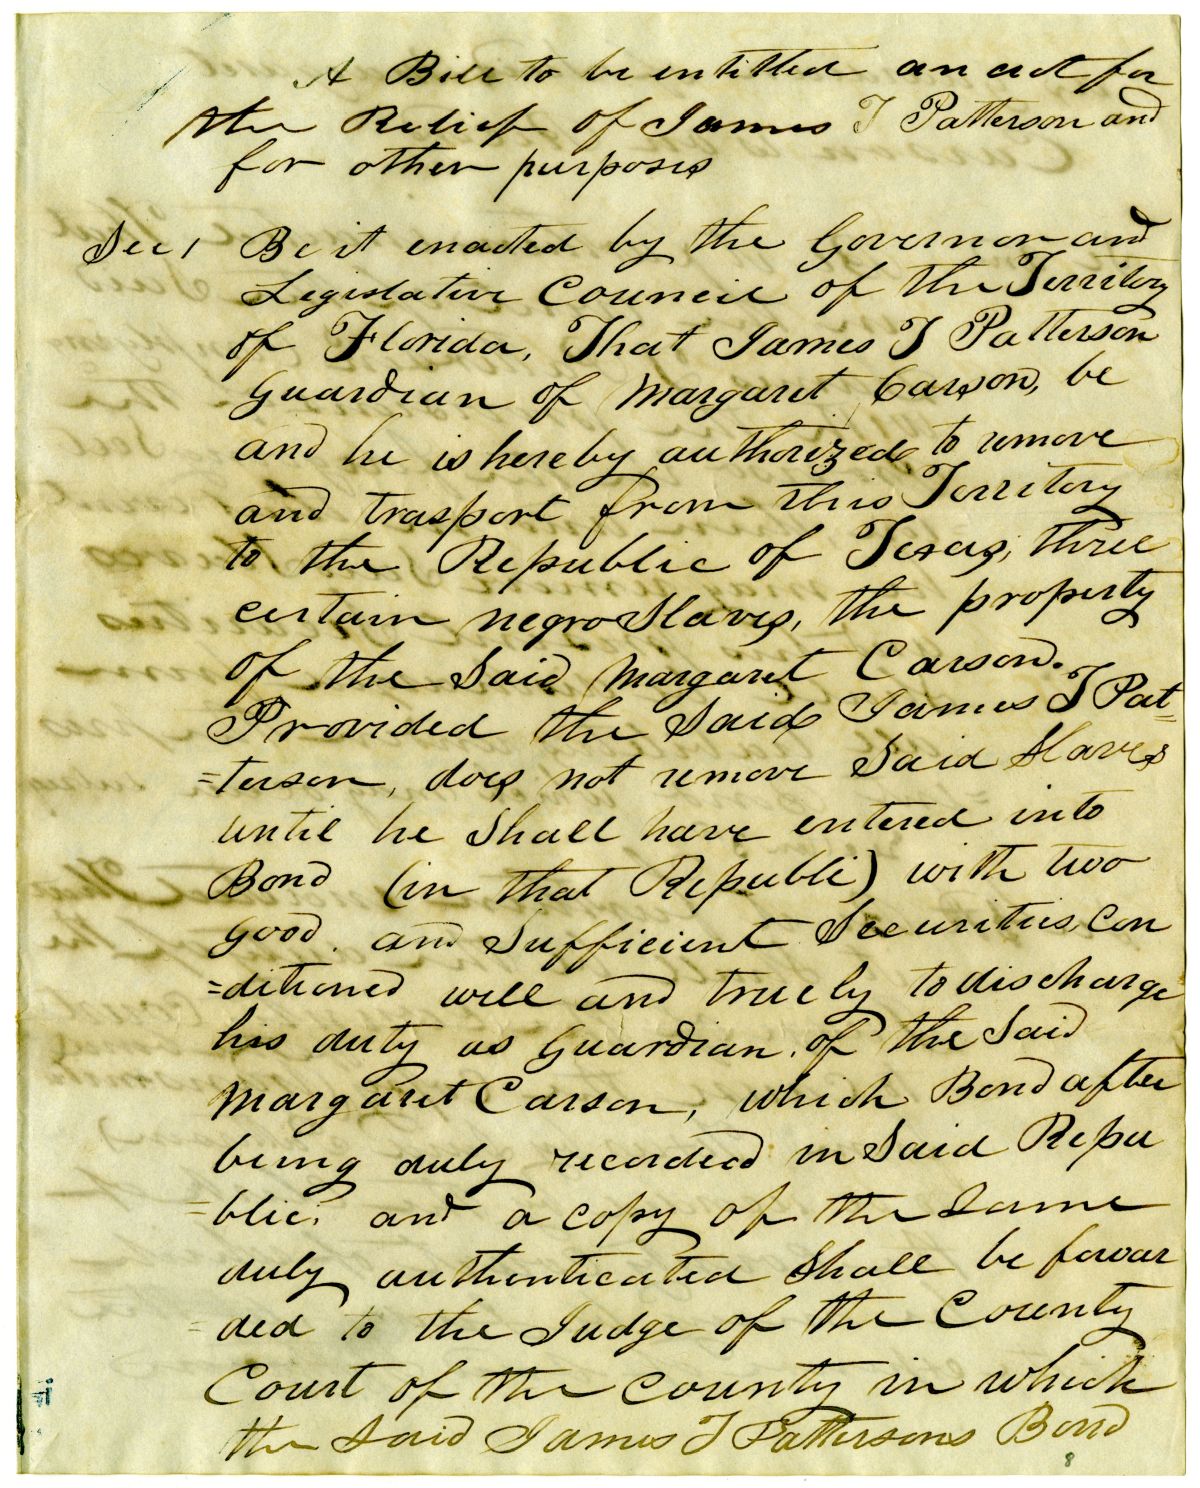 A Bill to be entitled an act for
the Relief of James T Patterson and
for other purposes
Sec 1 Be it enacted by the Governor and
Legislative Council of the Territory
of Florida, That James T Patterson
Guardian of Margaret Carson, be
and he is hereby authorized, to remove
and trasport from this Territory
to the Republic of Texas, three
certain negro Slaves, the property
of the Said Margaret Carson.
Provided the Said James T Pat=
=terson, does not remove Said Slaves
until he Shall have entered into
Bond (in that Republi) with two
good. and Sufficient Securities, con
=ditioned well and truely to discharge
his duty as Guardian. of the Said
Margaret Carson, which Bond after
being duly recorded in Said Repu
=blic. and a copy of the Same
duly authenticated Shall be forwar
=ded to the Judge of the County
Court of the county in which
the Said James T Pattersons Bond
8